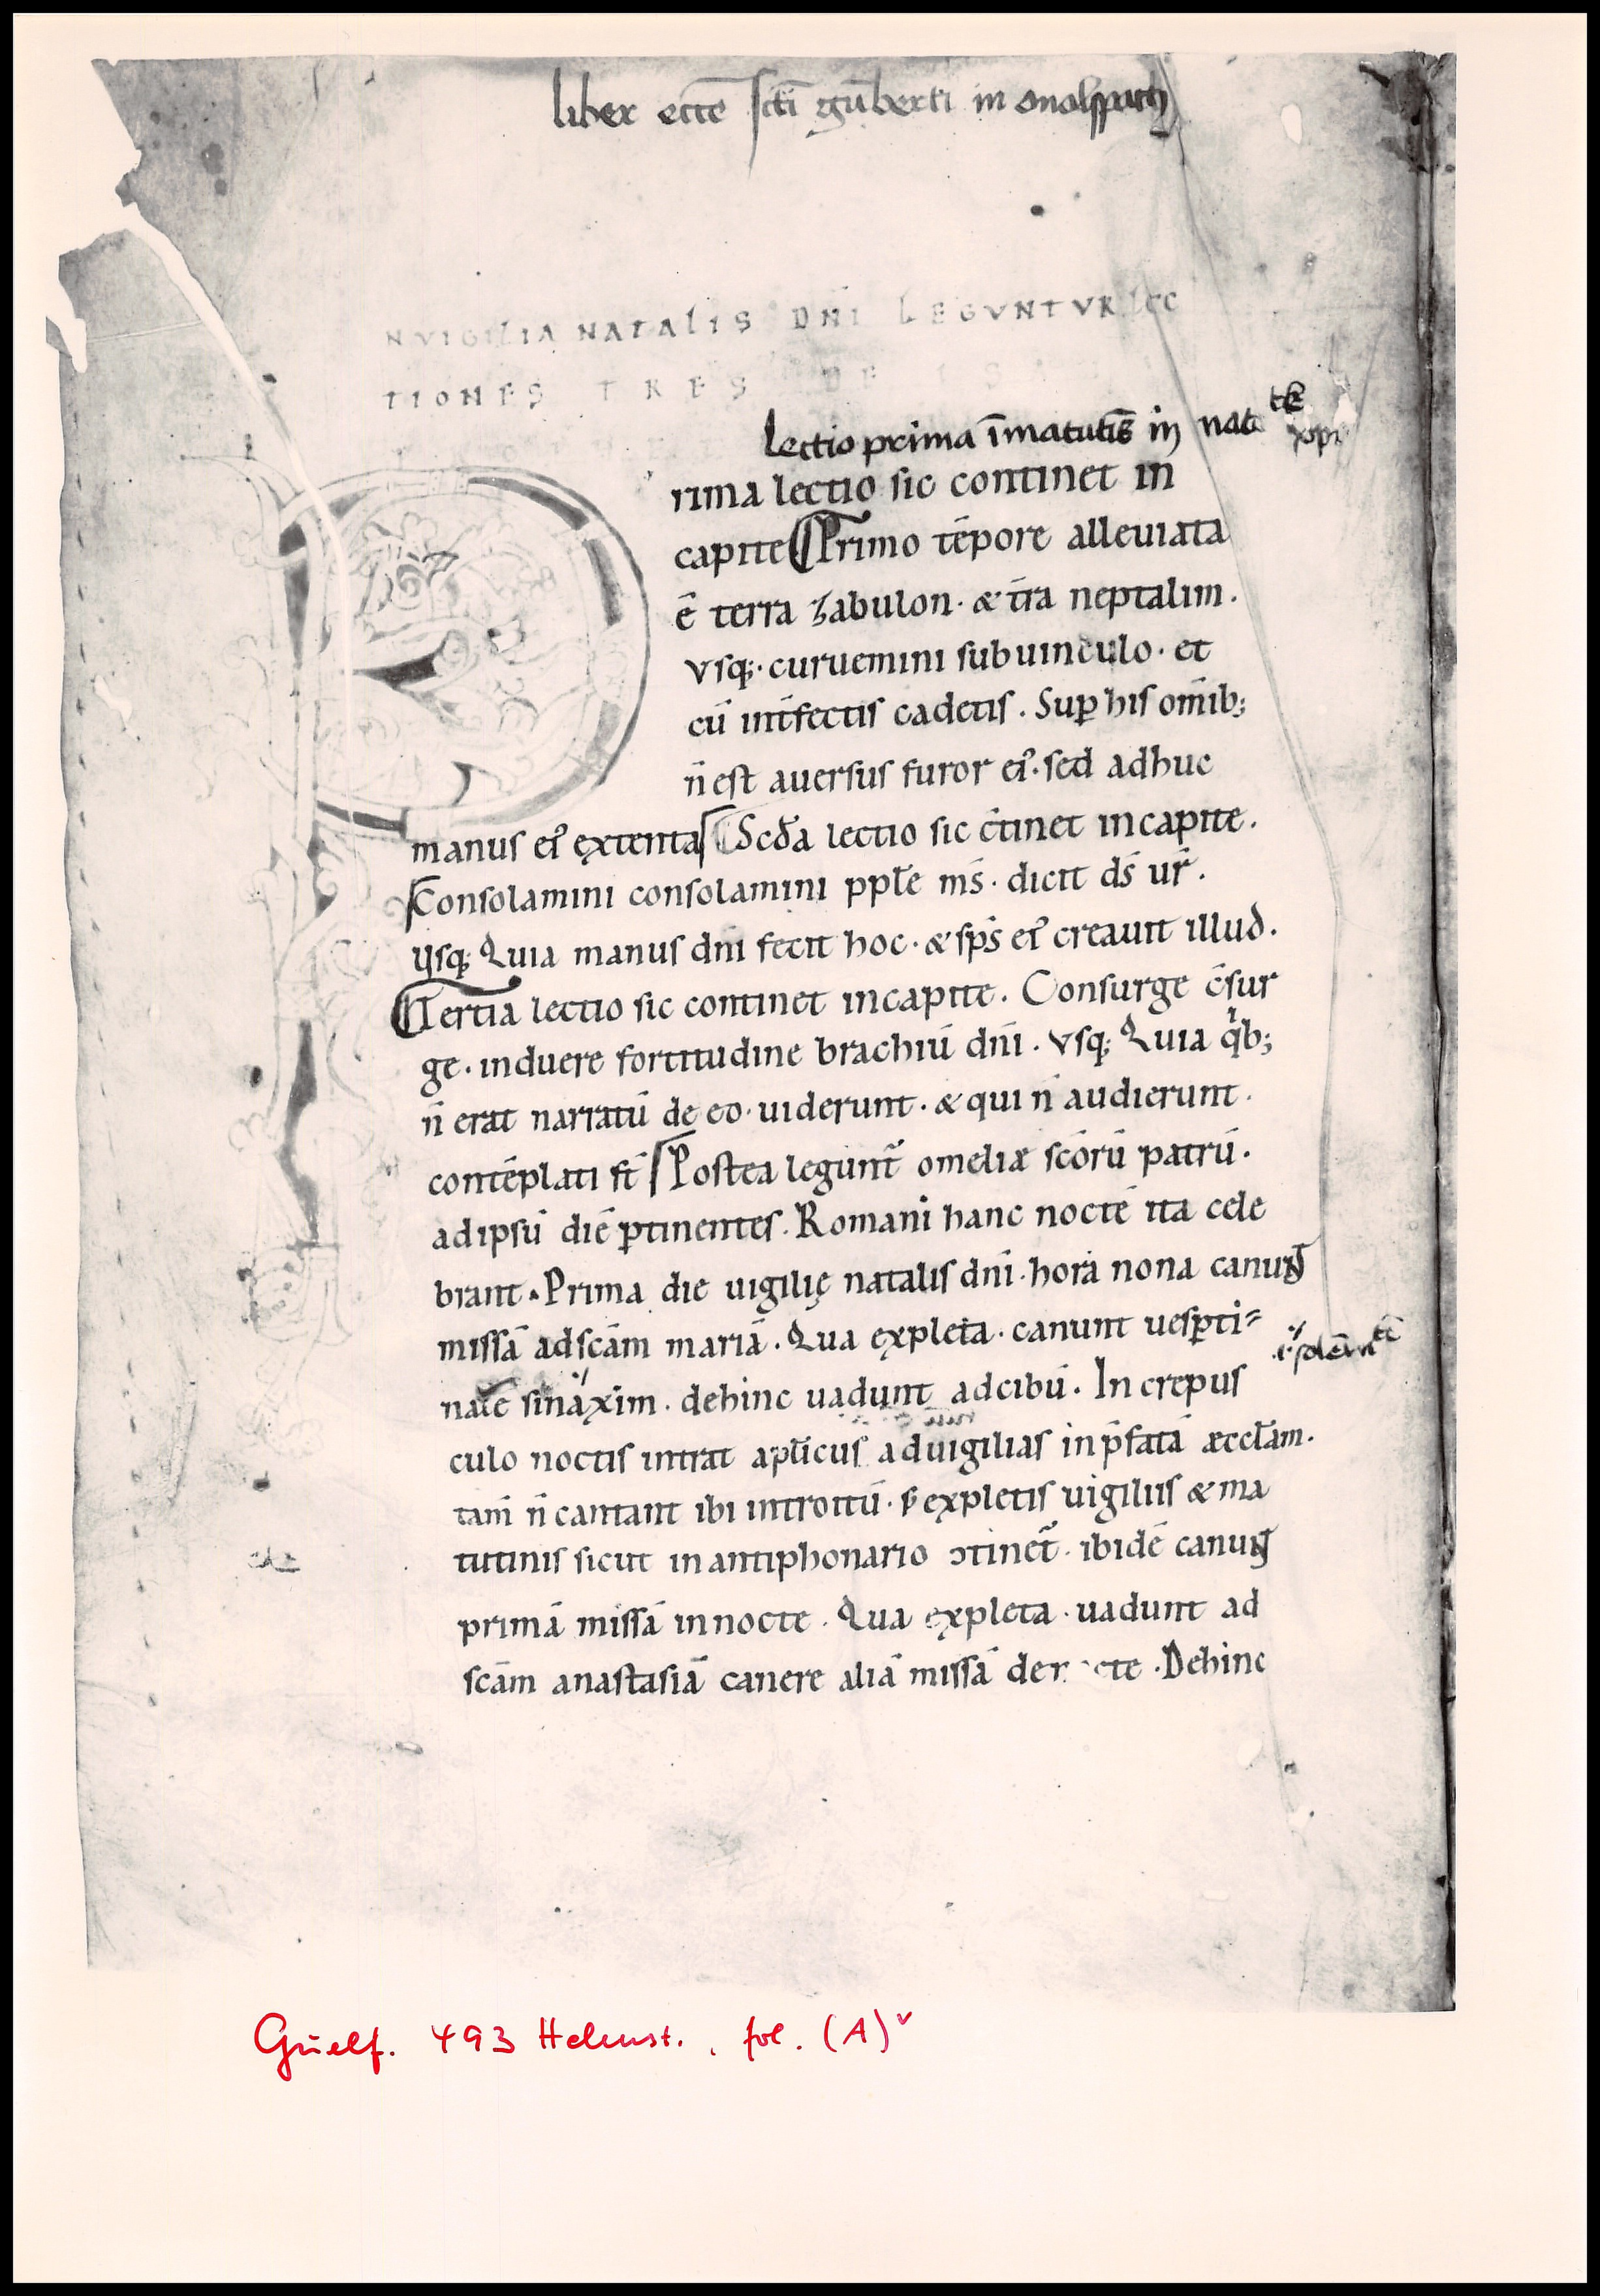 liber ecc̄e sc̄ti gūberti in onolspach
N VIGILIA NATALIS DN̄I LEGVNTVR LEC
TIONES TRES DE
Lectio prima ī matutīs in nat
rima lectio sic continet in
capite Primo tēpore alleuiata
ē terra zabulon · & t̄ra neptalim .
vsq; · curuemini sub uinculo · et
cū int̄fectis cadetis . Sup̱ his om̄ib;
n̄ est auersus furor ei᾽ · sed adhuc
manus ei᾽ extenta Scd̄a lectio sic c̄tinet in capite .
Consolamini consolamini pple̅ ms̄ · dicit ds̄ ur̄ .
vsq; Quia manus dn̄i fecit hoc · & sp̄s ei᾽ creauit illud .
Tertia lectio sic continet in capite . Consurge c̄sur
ge · induere fortitudine brachiū dn̄i . vsq; Quia qͥb;
n̄ erat narratū de eo · uiderunt · & qui n̄ audierunt .
contēplati st̄ Postea legunt᷑ omeliæ scōrū patrū .
ad ipsū diē p̱tinentes . Romani hanc noctē ita cele
brant . Prima die uigilię natalis dn̄i · hora nona canunt
missā ad scām mariā . Qua expleta · canunt uesp̱ti-
nalē sinaxim · dehinc uadunt ad cibū . In crepus
culo noctis intrat apl̄icus ad uigilias in p̄fatā æccl̄am .
tam̄ n̄ cantant ibi introitū · s; expletis uigiliis & ma
tutinis sicut in antiphonario ↄtinet᷑ · ibidē canunt
primā missā in nocte . Qua expleta · uadunt ad
scām anastasiā canere aliā missā de cte . Dehinc
Guelf. 493 Helmst., fol. (A)ᵛ